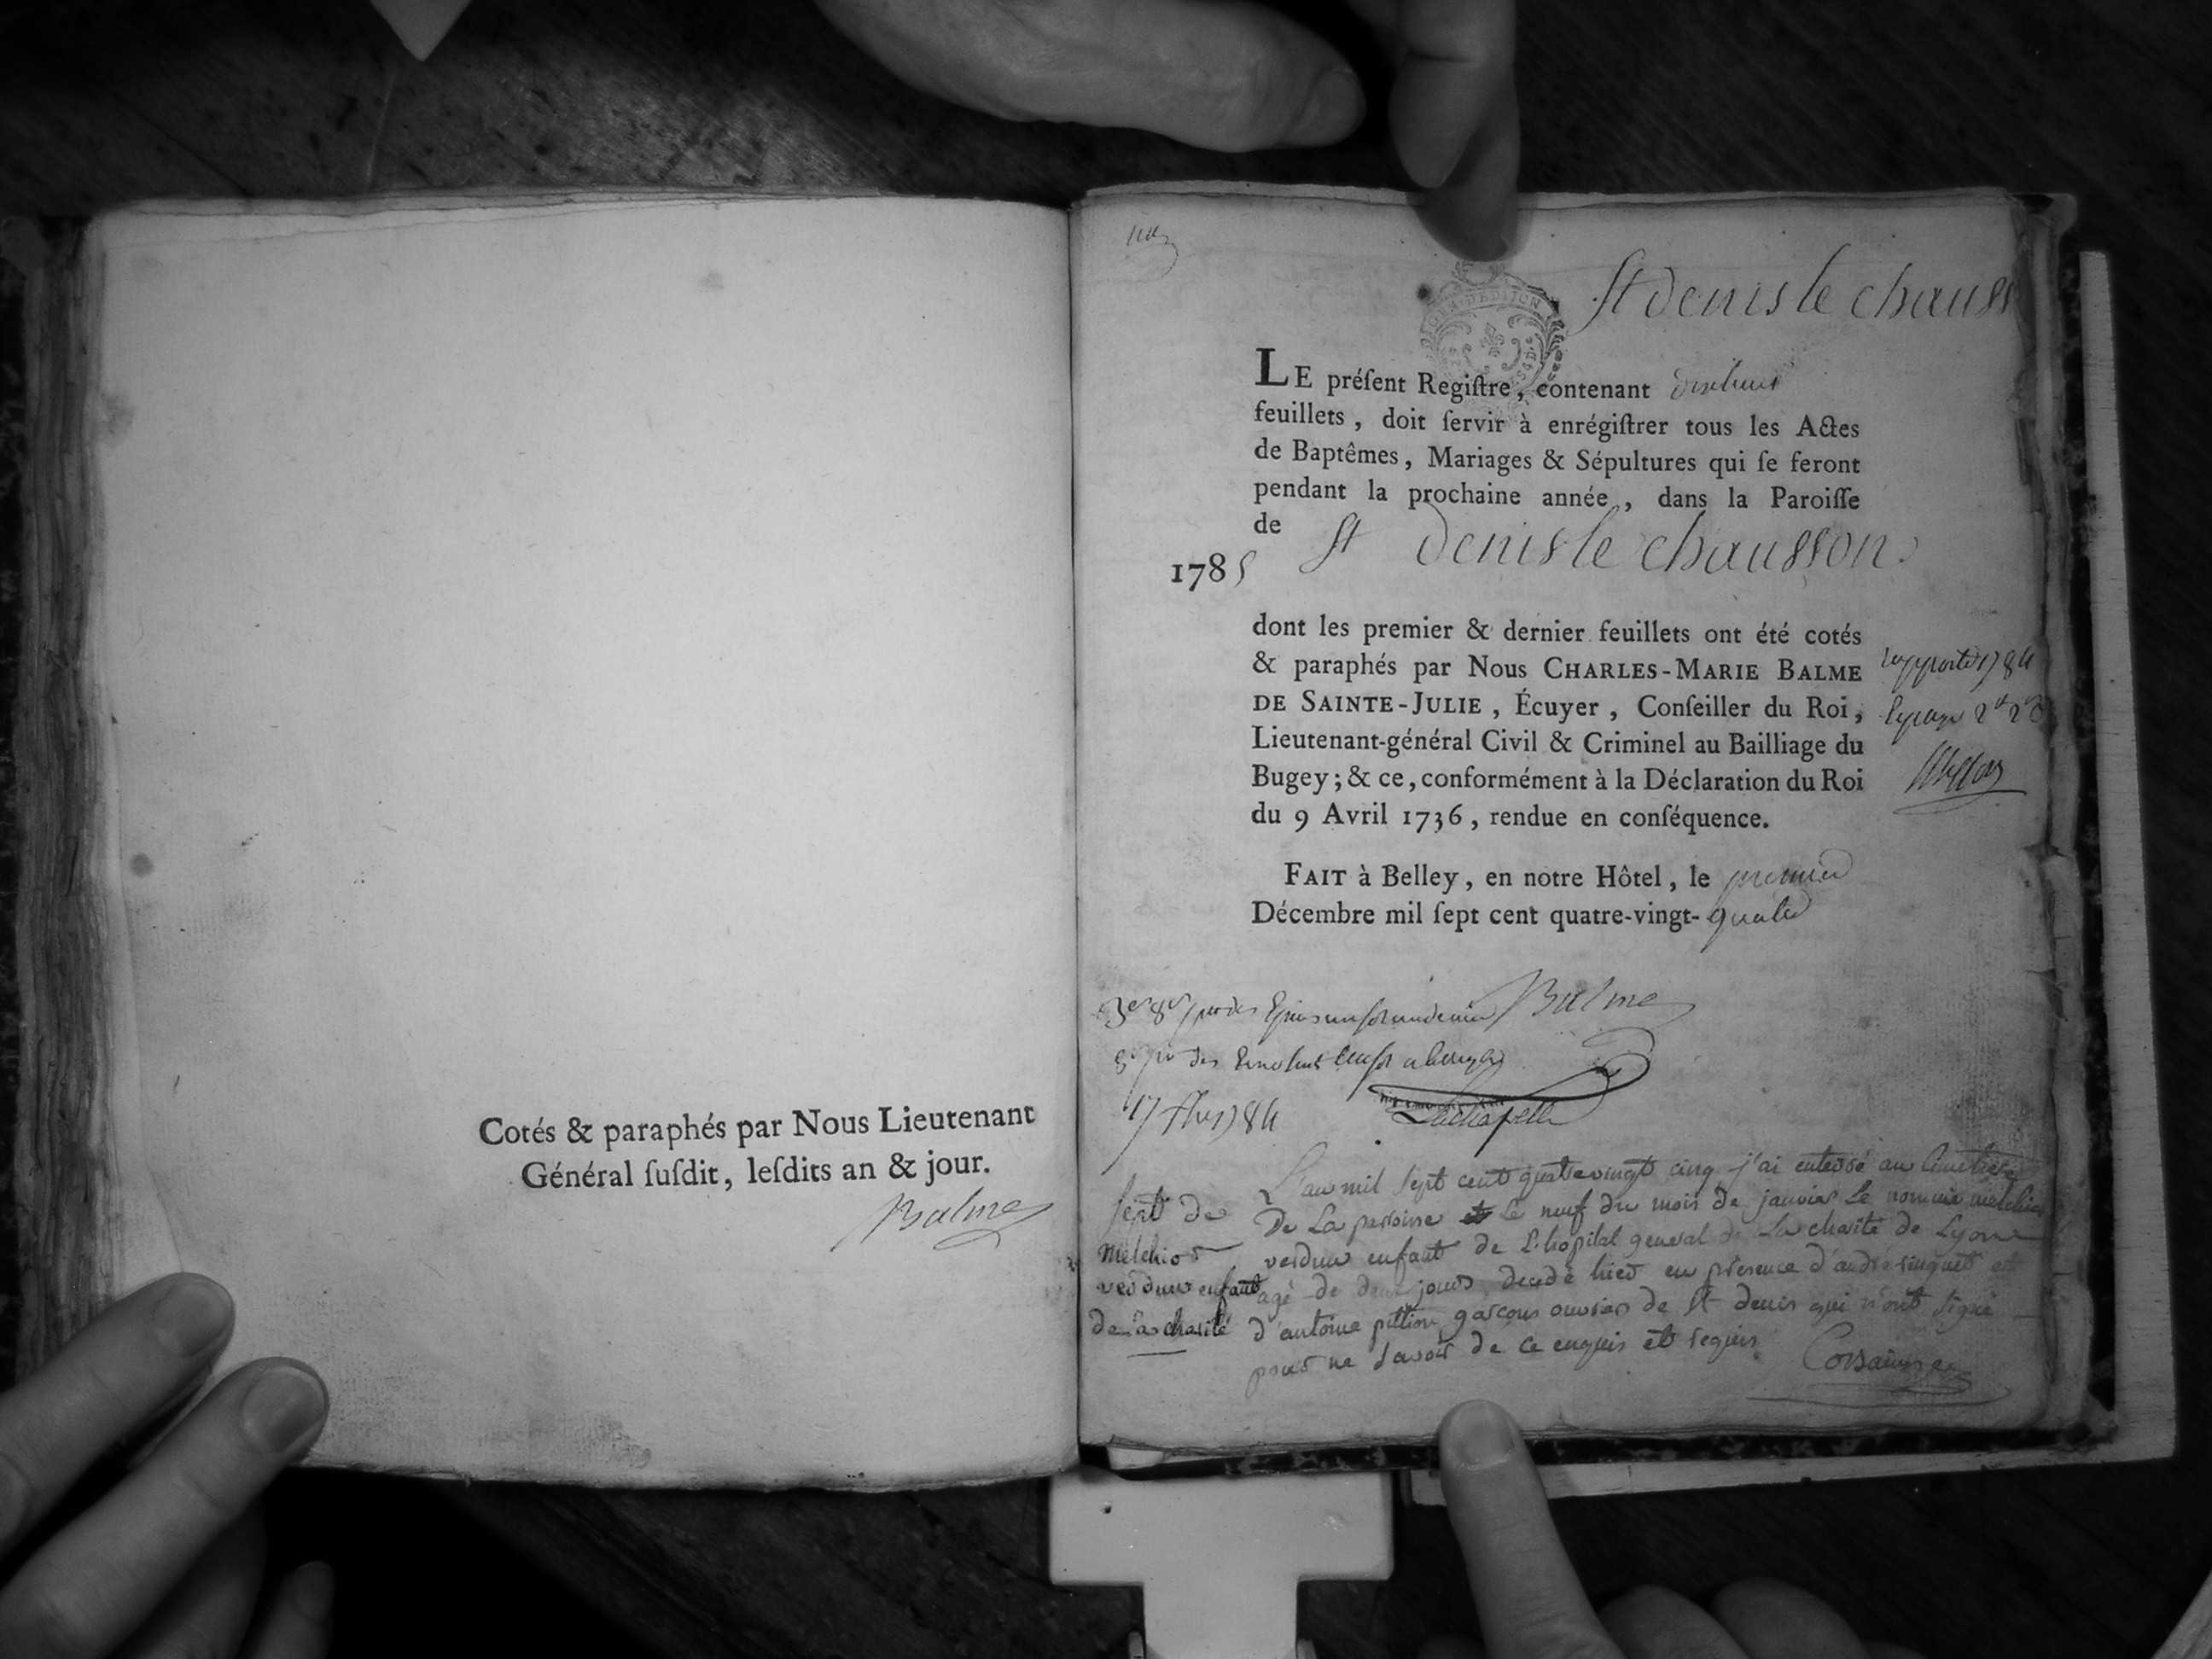 Cotés & paraphés par Nous Lieutenant
Général ſuſdit, leſdits an & jour.
Balme
St denis le chauss
LE préſent Regiſtre, contenant
feuillets, doit ſervir à enrégiſtrer tous les Actes
de Baptêmes, Mariages & Sépultures qui ſe feront
pendant la prochaine année, dans la Paroiſſe
de St denis le chausson
1785
dont les premier & dernier feuillets ont été cotés
& paraphés par Nous CHARLES-MARIE BALME
DE SAINTE-JULIE, Écuyer, Conſeiller du Roi,
Lieutenant-général Civil & Criminel au Bailliage du
Bugey; & ce, conformément à la Déclaration du Roi
du 9 Avril 1736, rendue en conſéquence.
FAIT à Belley, en notre Hôtel, le premier
Décembre mil ſept cent quatre-vingt-quatre
Balme
Lachapelle
L'an mil sept cent quatre vingt cinq j'ai enterré au cimetiere
De La paroisse le neuf du mois de janvier Le nommé melchior
verdun enfant de L'hopital general de La charité de Lyon
agé de deux jours decedé hier en présence d'andré et
d'antoine pittion garcons ouvriers de St denis qui n'ont signé
pour ne savoir de ce enquis et requis
Sept de
Melchior
verdun enfant
de la charité